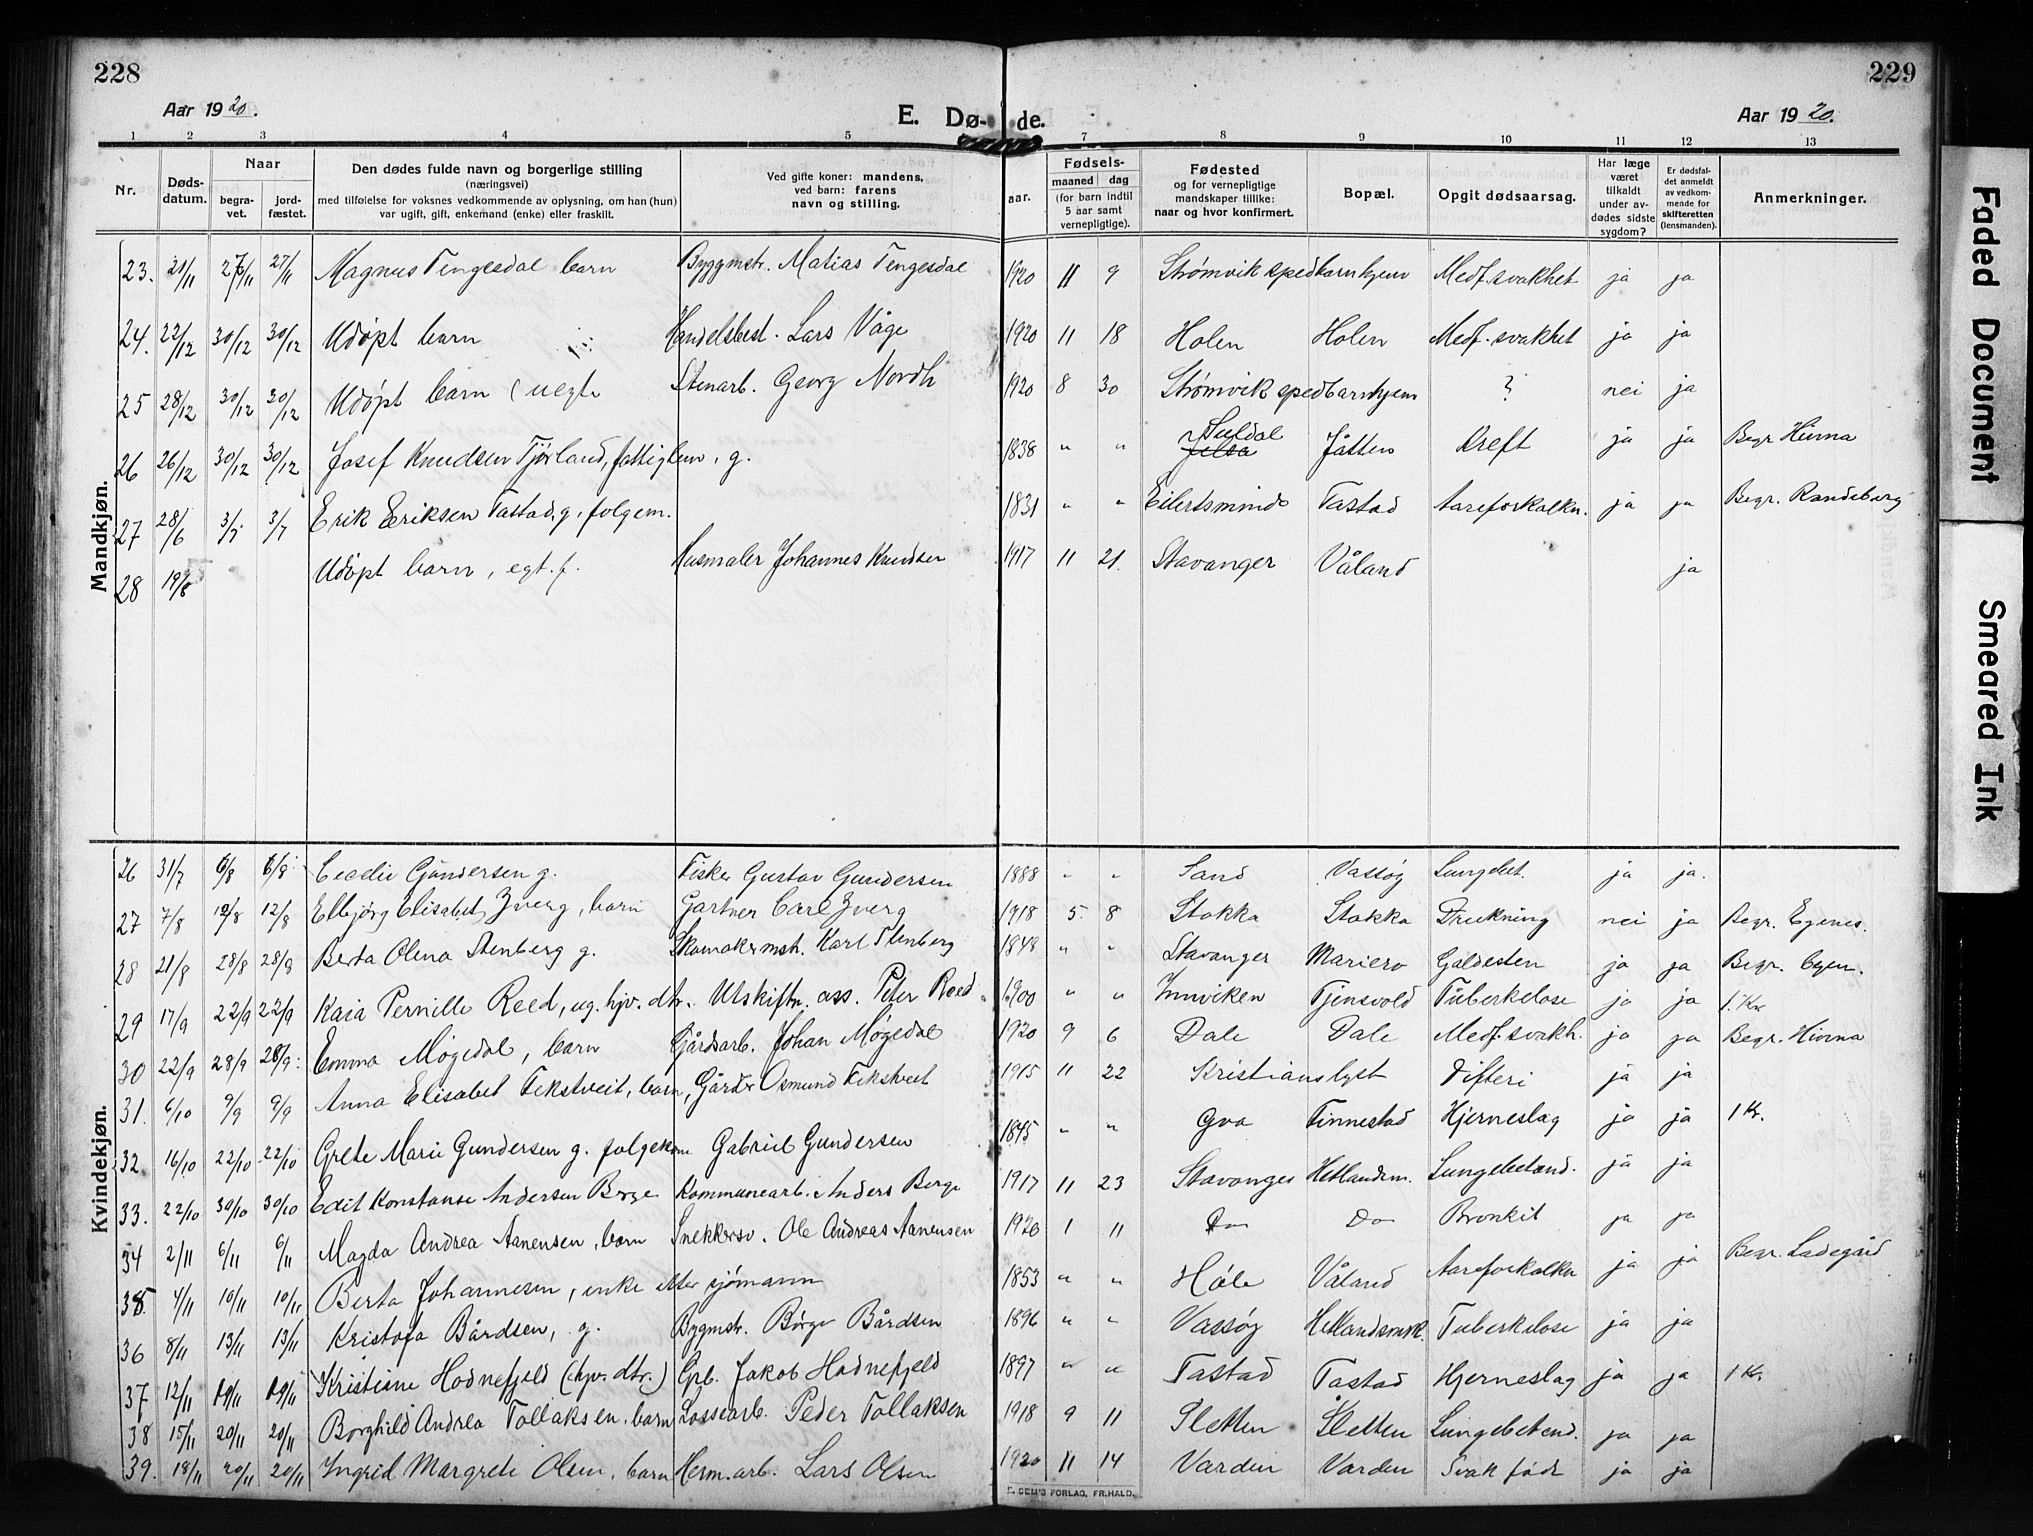 228
229
Aar 1920.
E. Dø- de.
Aar 1920.
1 2 3 4 5 7 8 9 10 11 12 13
Nr.
Døds-
datum.
Naar
begra-
vet.
jord-
fæstet.
Den dødes fulde navn og borgerlige stilling
(næringsvei)
med tilføielse for voksnes vedkommende av oplysning, om han (hun)
var ugift, gift, enkemand (enke) eller fraskilt.
Ved gifte koner: mandens,
ved barn: farens
navn og stilling.
Fødsels-
aar.
maaned dag
(for barn indtil
5 aar samt
vernepligtige).
Fødested
og for vernepligtige
mandskaper tillike:
naar og hvor konfirmert.
Bopæl.
Opgit dødsaarsag.
Har læge
været
tilkaldt
under av-
dødes sidste
sygdom?
Er dødsfal-
det anmeldt
av vedkom-
mende for
skifteretten
(lensmanden).
Anmerkninger.
Mandkjøn.
23. 21/11 27/11 27/11 Magnus Tengesdal barn Byggmstr. Matias Tengesdal 1920 11 9 Strømvik spedbarnhjem Medf. svakhet ja ja
24. 22/12 30/12 30/12 Udøpt barn Handelsbest. Lars Våge 1920 11 18 Holen Holen Medf. svakhet ja ja
25 28/12 30/12 30/12 Udøpt barn (uegte Stenarb. Georg Nordh 1920 8 30 Strømvik spedbarnhjem ? nei ja
26 26/12 30/12 30/12 Josef Knudsen Tjørland, fattiglem, g. 1838 " " Jelsa Suldal Jåtten Kreft ja ja Begr. Hinna
27 28/6 3/7 3/7 Erik Eriksen Tastad, g. folgem. 1831 " " Eilertsminde Tastad Aareforkalkn. ja ja Begr. Randeberg
28 19/8 Udøpt barn, egt. f. Husmaler Johannes Knudsen 1917 11 21. Stavanger Våland ja
Kvindekjøn.
26 31/7 6/8 6/8 Cecelie Gundersen g. Fisker Gustav Gundersen 1888 " " Sand Vassøy Lungebet. ja ja.
27 7/8 12/8 12/8 Elbjørg Elisabet Iverg, barn Gartner Carl Iverg 1918 5. 8 Stokka Stokka Drukning nei ja Begr. Egenes.
28 21/8 28/8 28/8 Berta Olena Stenberg g. Skomakermstr. Karl Stenberg 1848 " " Stavanger Mariero Galdesten ja ja Begr. Egen.
29 17/9 22/9 22/9 Kaia Pernille Reed, ug. hjv. dtr. Utskiftn. ass. Peter Reed 1900 " " Innviken Tjensvold Tuberkelose ja ja 1. Kr.
30 22/9 28/9 28/9. Emma Møgedal, barn Gårdsarb. Johan Møgedal 1920 9 6 Dale Dale Medf. svakh. ja ja Begr. Hinna
31. 6/10 9/9 9/9 Anna Elisabet Tekstveit, barn, Gårdbr Osmund Tekstveit 1915 11 22 Kristianslyst Difteri ja ja
32. 16/10 22/10 22/10 Grete Marie Gundersen g. folgekone Gabriel Gundersen 1845 " " Goa Finnestad Hjerneslag ja ja 1 Kr.
33. 22/10 30/10 30/10 Edit Konstanse Andersen Berge Kommunearb. Anders Berge 1917 11 23 Stavanger Hetlandsm. Lungebetænd. ja ja
34 2/11 6/11 6/11 Magda Andrea Aanensen, barn Snekkersv. Ole Andreas Aanensen 1920 1 11 Do Do Bronkit ja ja
35 4/11 10/11 10/11 Berta Johannesen, enke etter sjømann 1853 " " Høle Våland Aareforkalkn ja ja Begr. Ladegård
36 8/11 13/11 13/11 Kristofa Bårdsen, g. Bygmstr. Børge Bårdsen 1896 " " Vassøy Hetlandsmk. Tuberkelose ja ja
37 12/11 19/11 19/11 Kristine Hodnefjeld (hjv. dtr.) Grb. Jakob Hodnefjeld 1897 " " Tastad Tastad Hjerneslag ja ja 1 Kr.
38 15/11 20/11 20/11 Borghild Andrea Tollaksen, barn Lossearb. Peder Tollaksen 1918 9 11 Sletten Sletten Lungebetend. ja ja
39. 18/11 20/11 20/11 Ingrid Margrete Olsen, barn Herm.arb. Lars Olsen 1920 11 14 Varden Varden Svak født ja ja
E. SEM'S FORLAG, FR.HALD.
Faded Document
Smeared Ink